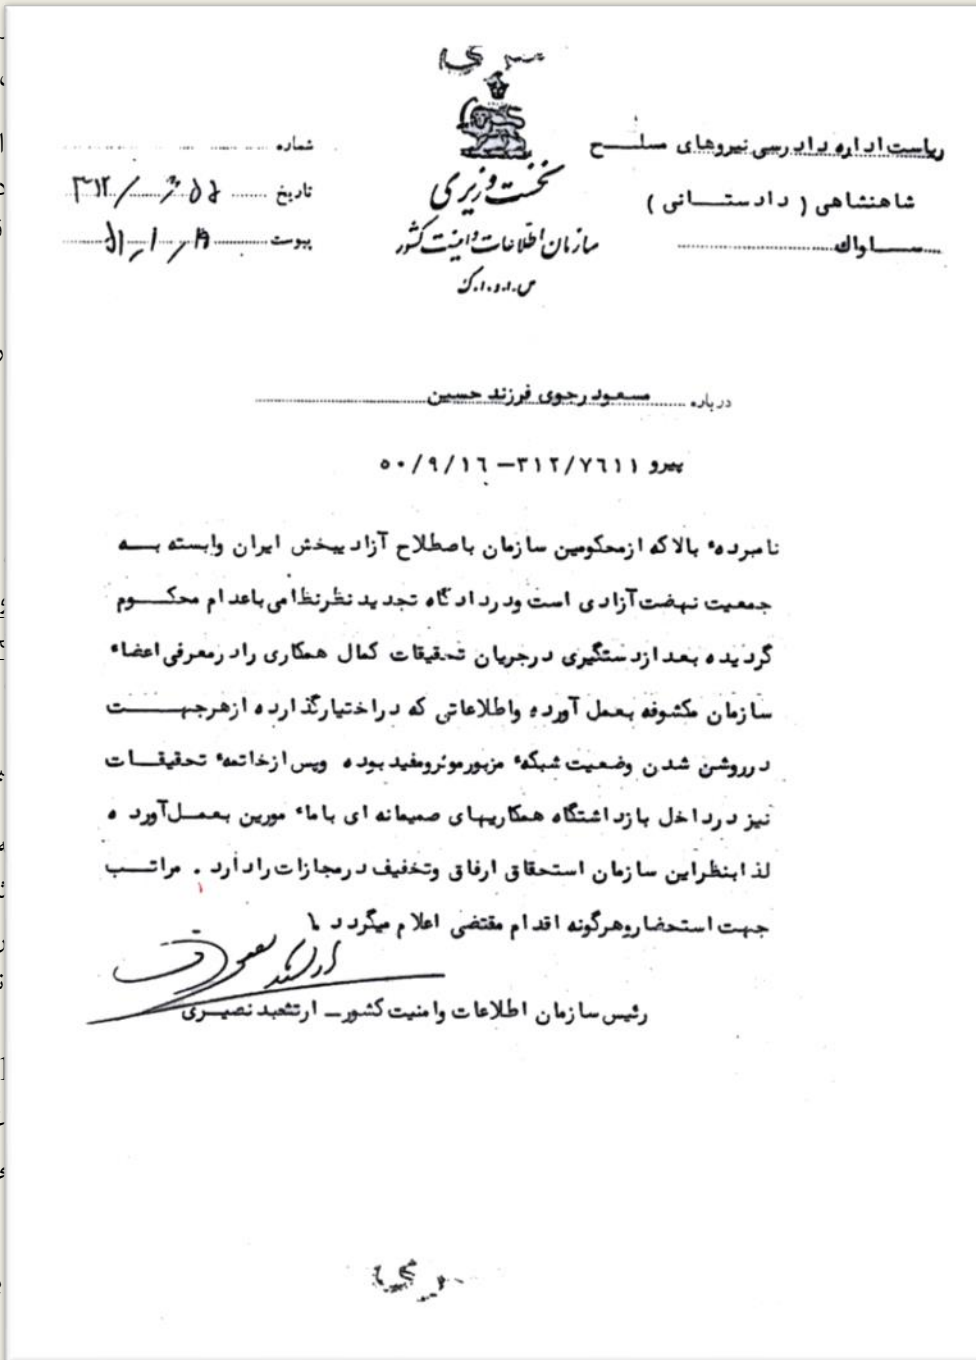 سری
ریاست اداره دادرسی نیروهای مسلح
شاهنشاهی ( دادستانی )
ساواک
نخست وزیری
سازمان اطلاعات و امنیت کشور
س.ا.و.ا.ک
شماره
تاریخ
پیوست ۵۱/۱/۱۹
درباره مسعود رجوی فرزند حسین
پیرو ۳۱۲/۷٦۱۱ – ۵۰/۹/۱٦
نامبردهٔ بالا که ازمحکومین سازمان باصطلاح آزادیبخش ایران وابسته بـــه
جمعیت نهضت آزادی است ودردادگاه تجدید نظرنظامی باعدام محکــوم
گردیده بعد ازدستگیری درجریان تحقیقات کمال همکاری رادرمعرفی اعضاء
سازمان مکشوفه بعمل آورده واطلاعاتی که دراختیارگذارده ازهرجهـــت
درروشن شدن وضعیت شبکهٔ مزبورموثرومفید بوده وپس ازخاتمهٔ تحقیقــات
نیز درداخل بازداشتگاه همکاریهای صمیمانه ای باماء مورین بعمــل آورده
لذا بنظراین سازمان استحقاق ارفاق وتخفیف درمجازات رادارد . مراتــب
جهت استحضاروهرگونه اقدام مقتضی اعلام میگردد .
رئیس سازمان اطلاعات وامنیت کشور ــ ارتشبد نصیـری
سری